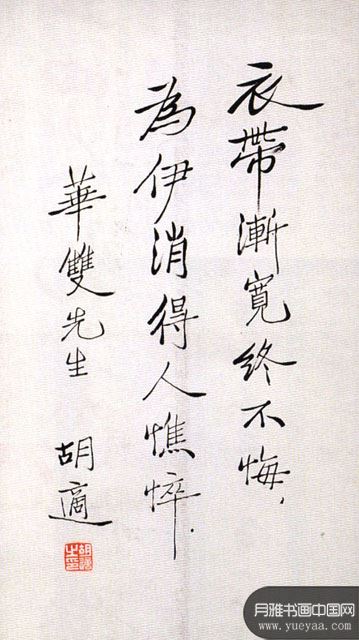 衣帶漸寬終不悔，
為伊消得人憔悴．
華雙先生
胡適
胡適之印
月雅书画中国网
www.yueyaa.com